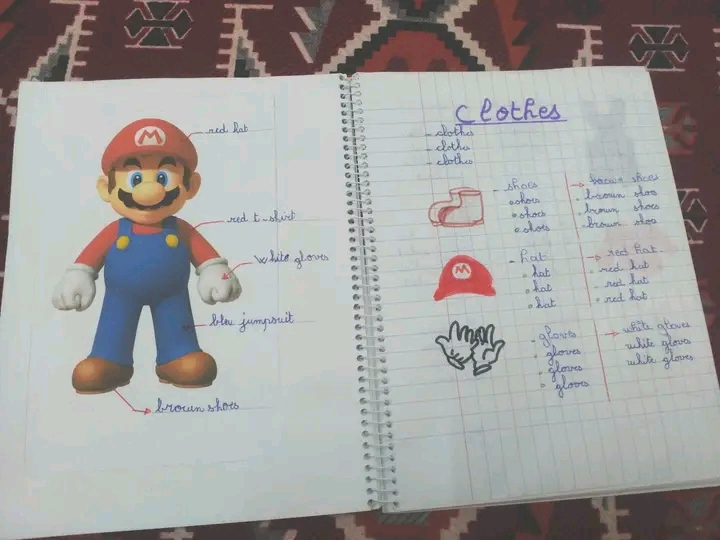 M
red hat
red t-shirt
white gloves
bleu jumpsuit
brown shoes
Clothes
- clothes
- clothes
- clothes
- shoes
• shoes
• shoes
• shoes
→ brown shoes
• brown shoes
• brown shoes
• brown shoes
M
- hat
• hat
• hat
• hat
→ red hat
• red hat
• red hat
• red hat
- gloves
• gloves
• gloves
• gloves
→ white gloves
white gloves
white gloves